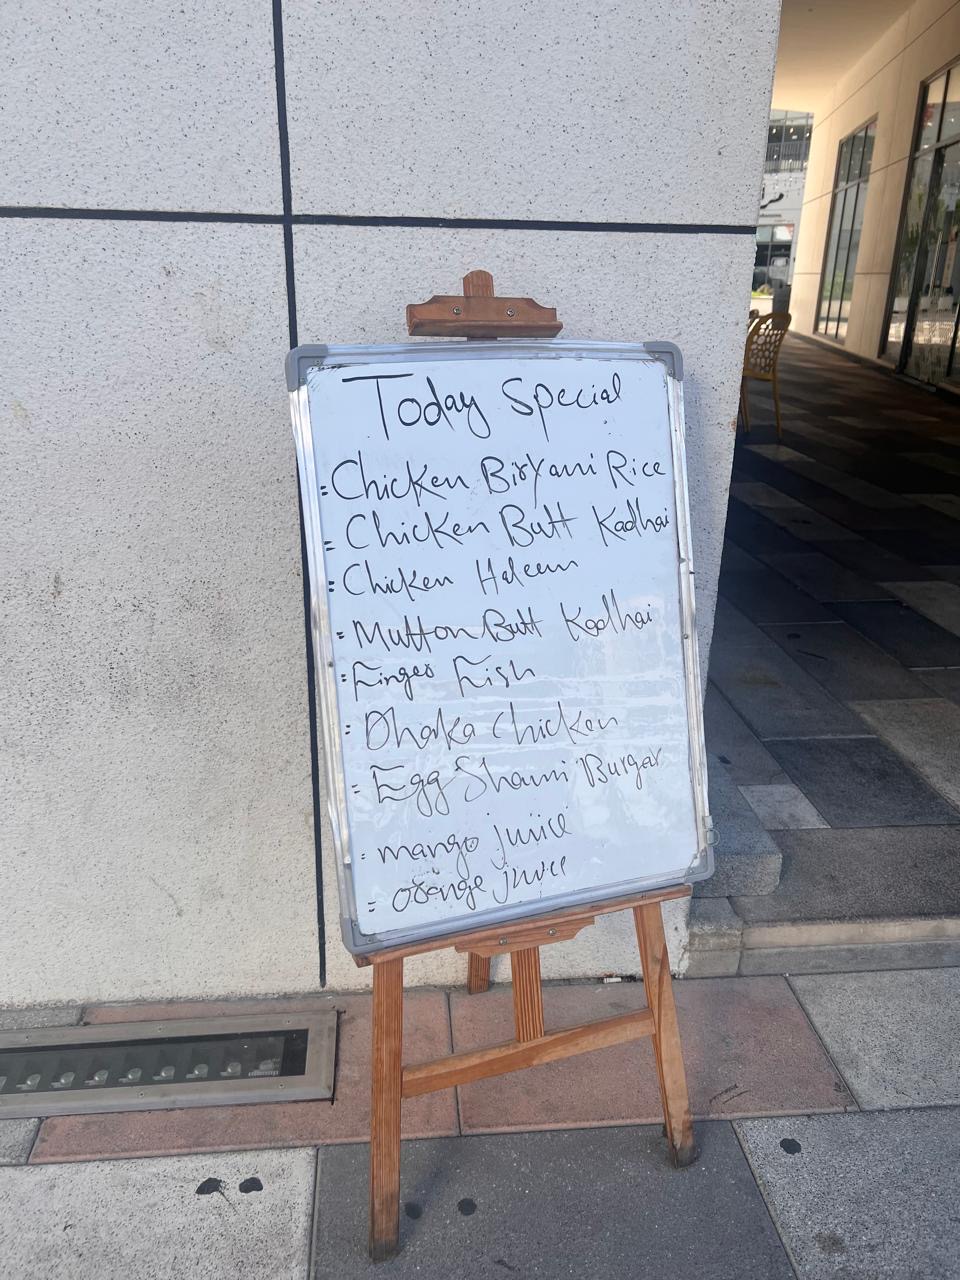 Today Special
= Chicken Biryani Rice
= Chicken Butt Kadhai
= Chicken Haleem
= Mutton Butt Kadhai
= Finger Fish
= Dhaka Chicken
= Egg Shami Burger
= mango juice
= orange juice